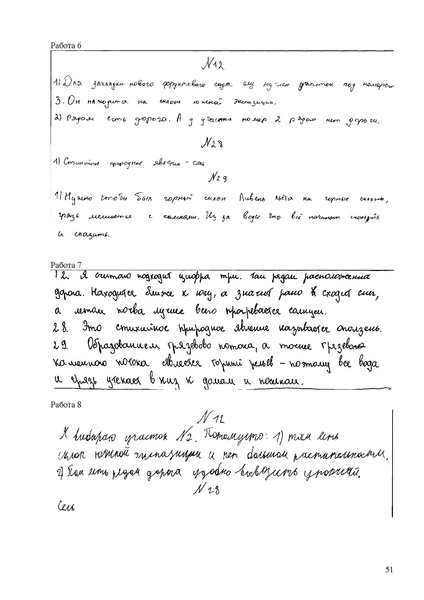 Работа 6
N12
1) Для закладки нового фруктового сада ему нужен участок под номером
3. Он находится на склоне южной экспозиции.
2) Рядом есть дорога. А у участка номер 2 рядом нет дороги.
N28
1) Стихийное природное явление - сель
N29
1) Нужно чтобы был горный склон Ливень льёта на горные склоны,
грязь мешается с камнями. Из за воды это всё начинает
и скатить.
Работа 7
12. Я считаю подходит цифра три. Там рядом расположенна
дорога. Находится ближе к югу, а значит рано сходит снег,
а летом почва лучше всего прогревается солнцем.
28. Это стихийное природное явление называется оползень.
29 Образованием грязевово потока, а точнее грязевово
каменного потока является горный рельеф - поэтому все вода
и грязь утекает в низ к домам и поселкам.
Работа 8
N 12
Я выбираю участок N2. Потомушто: 1) там есть
склон южной экспазиции и нет большой растительности.
2) Там есть рядом дорога удобно вывозить урожай.
N 28
Сель
51